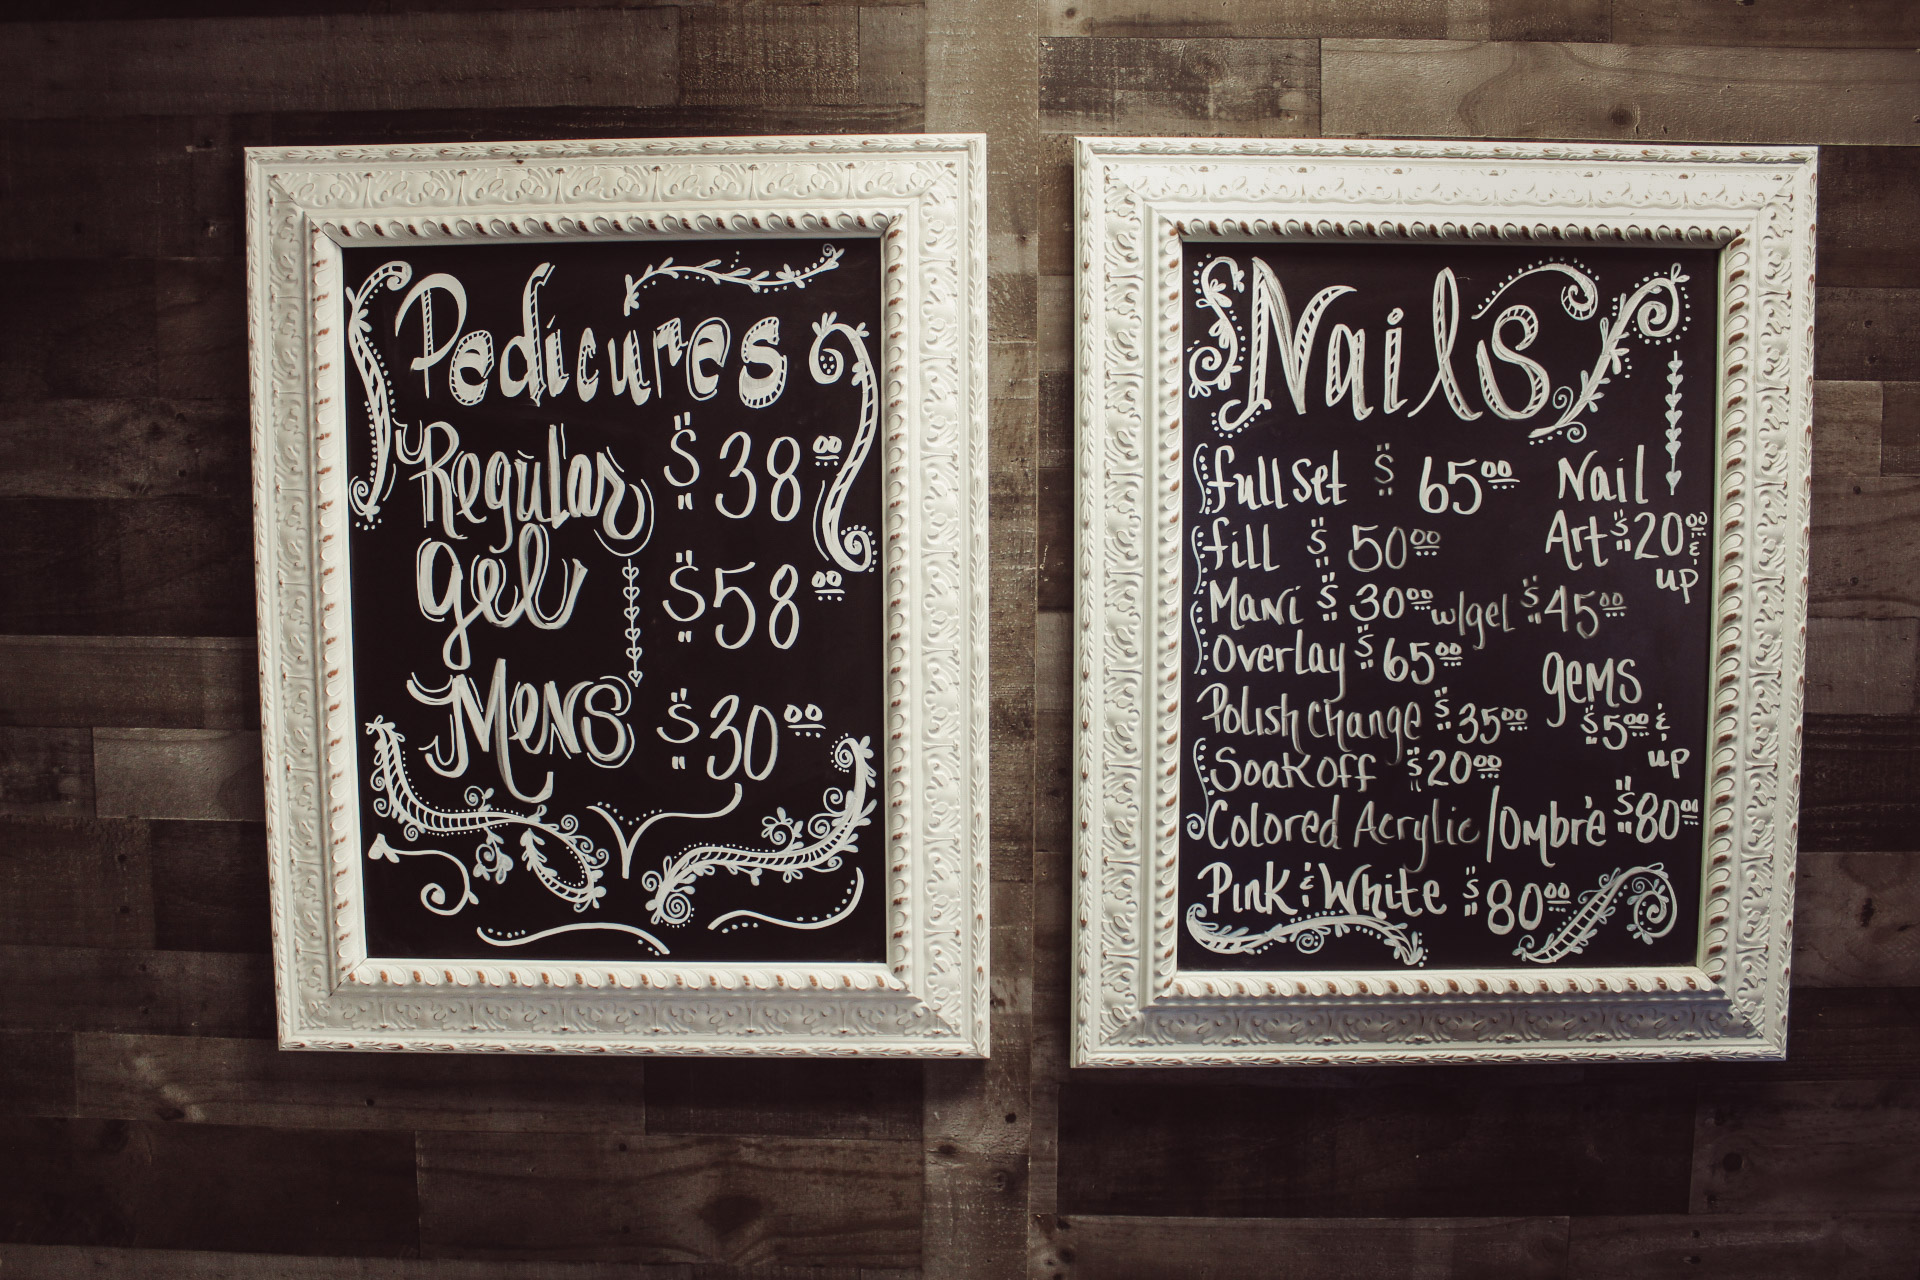 Pedicures
Regular $38.00
gel $58.00
Mens $30.00
Nails
full set $ 65.00
fill $ 50.00
Mani $ 30.00 w/gel $45.00
Overlay $65.00
Polish change $35.00
Soak off $20.00
Colored Acrylic/Ombrè $80.00
Pink & White $80.00
Nail
Art $20.00 &
up
gems
$5.00 &
up